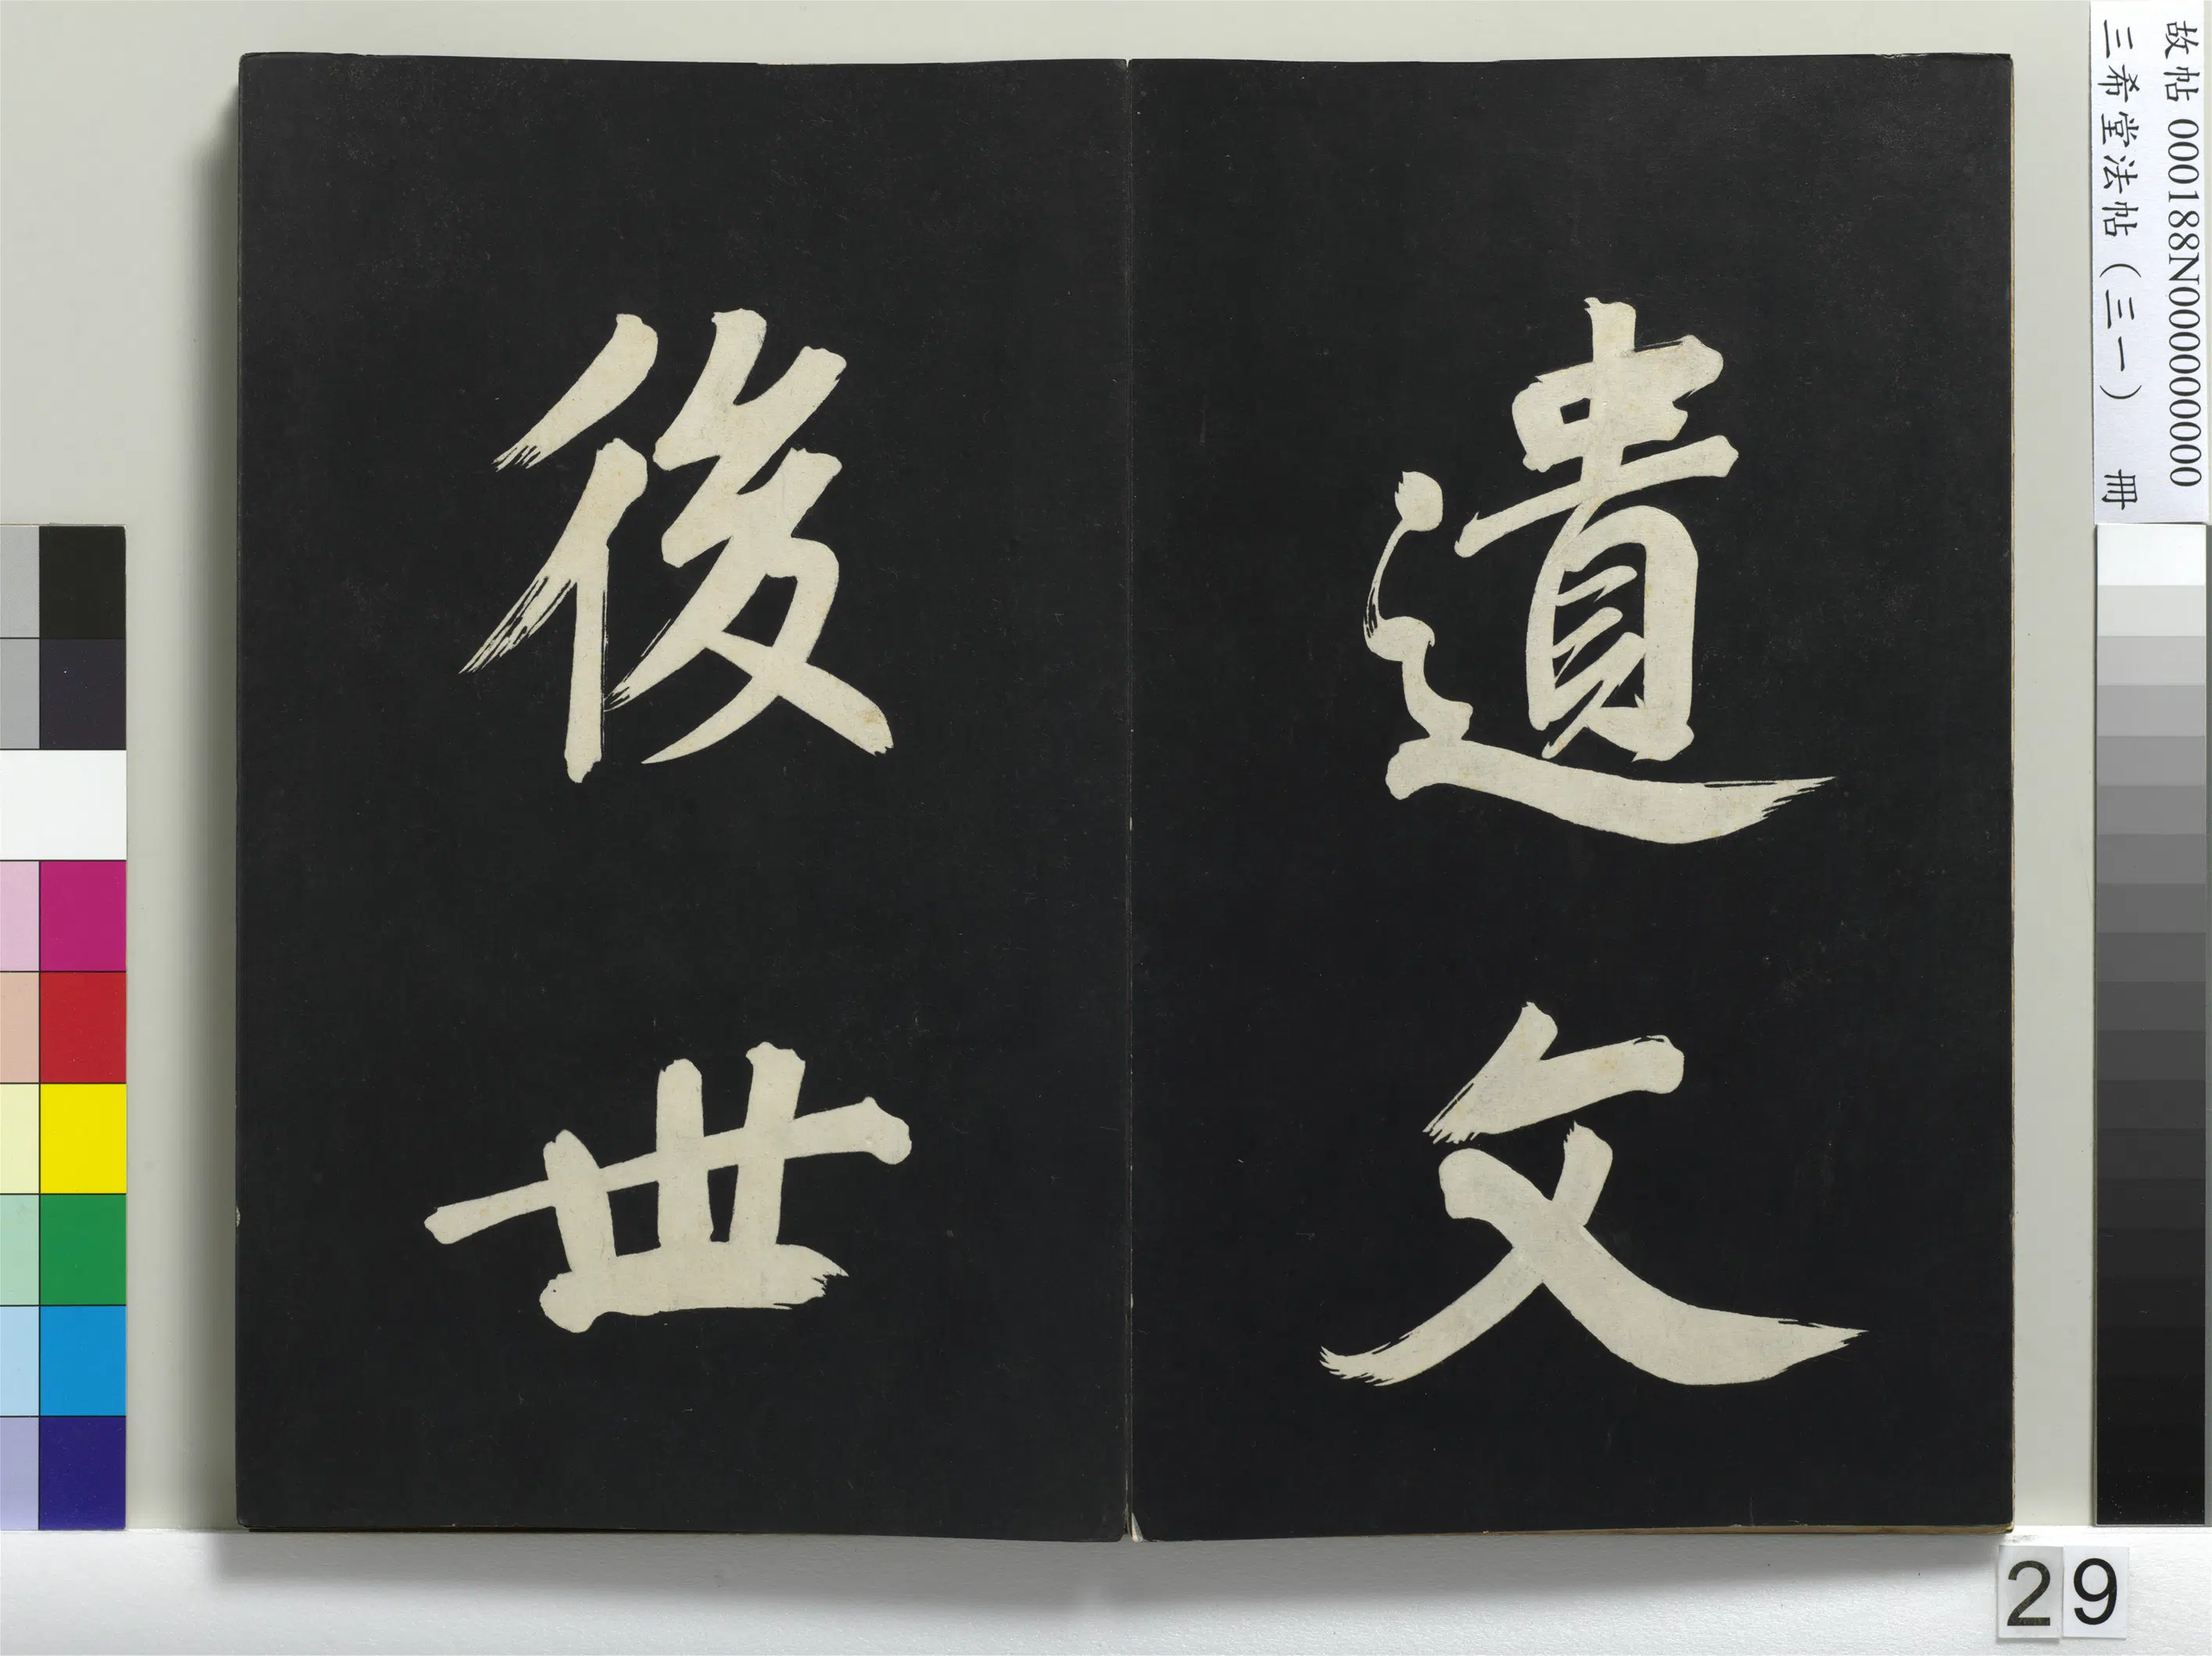 遺文
後世
故帖 000188N000000000
三希堂法帖（三一） 冊
29